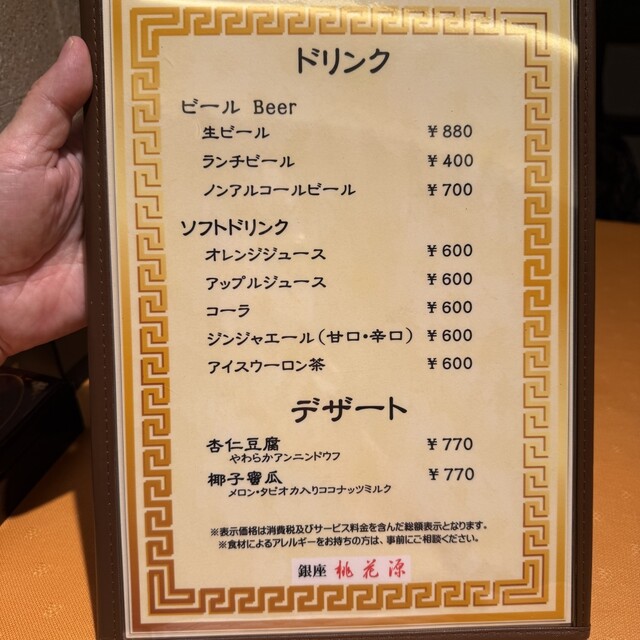 ドリンク
ビール Beer
生ビール ￥880
ランチビール ￥400
ノンアルコールビール ￥700
ソフトドリンク
オレンジジュース ￥600
アップルジュース ￥600
コーラ ￥600
ジンジャエール（甘口・辛口） ￥600
アイスウーロン茶 ￥600
デザート
杏仁豆腐 ￥770
やわらかアンニンドウフ
椰子蜜瓜 ￥770
メロン・タピオカ入りココナッツミルク
※表示価格は消費税及びサービス料金を含んだ総額表示となります。
※食材によるアレルギーをお持ちの方は、事前にご相談ください。
銀座 桃花源